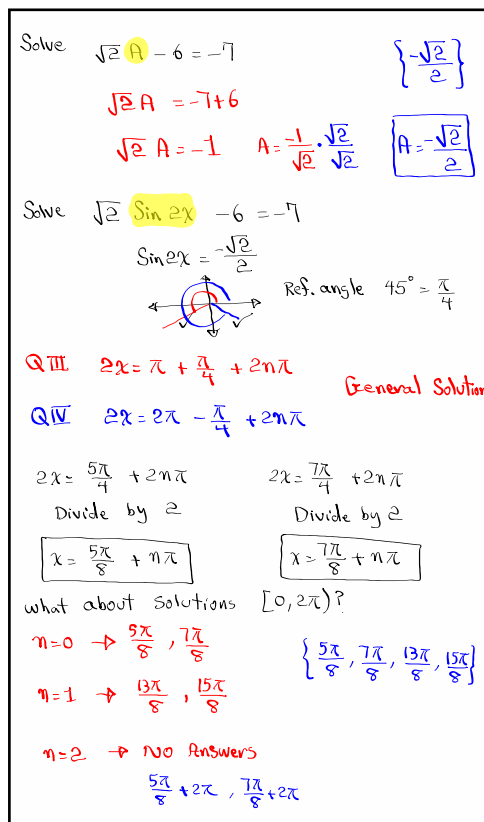 Solve √2 A - 6 = -7 {-√2/2}
√2 A = -7+6
√2 A = -1 A = -1/√2 · √2/√2 A = -√2/2
Solve √2 Sin 2x - 6 = -7
Sin 2x = -√2/2
Ref. angle 45° = π/4
Q III 2x = π + π/4 + 2nπ
General Solution
Q IV 2x = 2π - π/4 + 2nπ
2x = 5π/4 + 2nπ 2x = 7π/4 + 2nπ
Divide by 2 Divide by 2
x = 5π/8 + nπ x = 7π/8 + nπ
what about Solutions [0, 2π)?
n=0 → 5π/8 , 7π/8 {5π/8, 7π/8, 13π/8, 15π/8}
n=1 → 13π/8 , 15π/8
n=2 → No Answers
5π/8 + 2π , 7π/8 + 2π